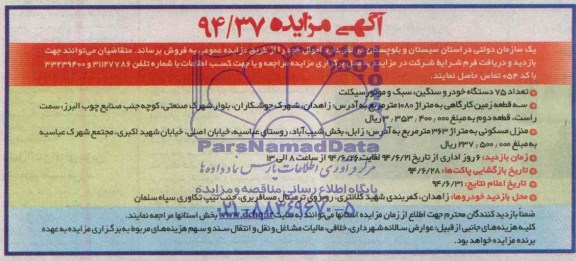 آگهی مزایده ۹۴/۳۷
یک سازمان دولتی در استان سیستان و بلوچستان در نظر دارد اموال خود را از طریق مزایده عمومی به فروش برساند. متقاضیان می‌توانند جهت
بازدید و دریافت فرم شرایط شرکت در مزایده به محل برگزاری مزایده مراجعه و یا جهت کسب اطلاعات با شماره تلفن ۳۱۱۲۷۷۸۶ و ۳۳۲۳۹۴۰۰
با کد ۰۵۴ تماس حاصل نمایند.
تعداد ۷۵ دستگاه خودرو سنگین، سبک و موتورسیکلت
سه قطعه زمین کارگاهی به متراژ ۱۰۸۰ مترمربع به آدرس: زاهدان، شهرک جوشکاران، بلوار شهرک صنعتی، کوچه جنب صنایع چوب البرز، سمت
راست، قطعه دوم به مبلغ ۳,۳۵۳,۴۰۰,۰۰۰ ریال
منزل مسکونی به متراژ ۳۶۳ مترمربع به آدرس: زابل، بخش شیب‌آباد، روستای عباسیه، خیابان اصلی، خیابان شهید اکبری، مجتمع شهرک عباسیه
به مبلغ ۲۳۷,۵۰۰,۰۰۰ ریال
زمان بازدید: ۶ روز اداری از تاریخ ۹۴/۶/۲۱ لغایت ۹۴/۶/۲۶ از ساعت ۸ الی ۱۳
تاریخ بازگشایی پاکت‌ها: ۹۴/۶/۲۸
تاریخ اعلام نتایج: ۹۴/۶/۳۱
محل بازدید خودروها: زاهدان، کمربندی شهید کلانتری، روبروی ترمینال مسافربری، جنب تیپ تکاوری سپاه سلمان
ضمناً بازدیدکنندگان محترم جهت اطلاع از زمان مزایده استانها می‌توانند به سایت بخش استانها مراجعه نمایند.
کلیه هزینه‌های جانبی از قبیل: عوارض سالانه شهرداری، خلافی، مالیات مشاغل و نقل و انتقال سند و سهم هزینه‌های مربوط به برگزاری مزایده به عهده
برنده مزایده خواهد بود.
ParsNamadData
مرکز فرآوری اطلاعات پارس نماد داده‌ها
پایگاه اطلاع رسانی مناقصه و مزایده
۰۲۱-۸۸۳۴۹۶۷۰-۵